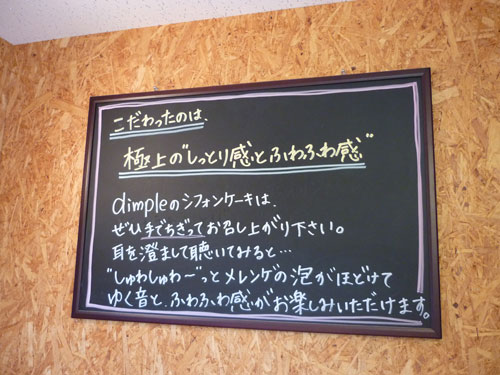 こだわったのは、
極上の"しっとり感とふわふわ感"
dimpleのシフォンケーキは、
ぜひ手でちぎってお召し上がり下さい。
耳を澄まして聴いてみると…
"しゅわしゅわー"っとメレンゲの泡がほどけて
ゆく音と、ふわふわ感がお楽しみいただけます。